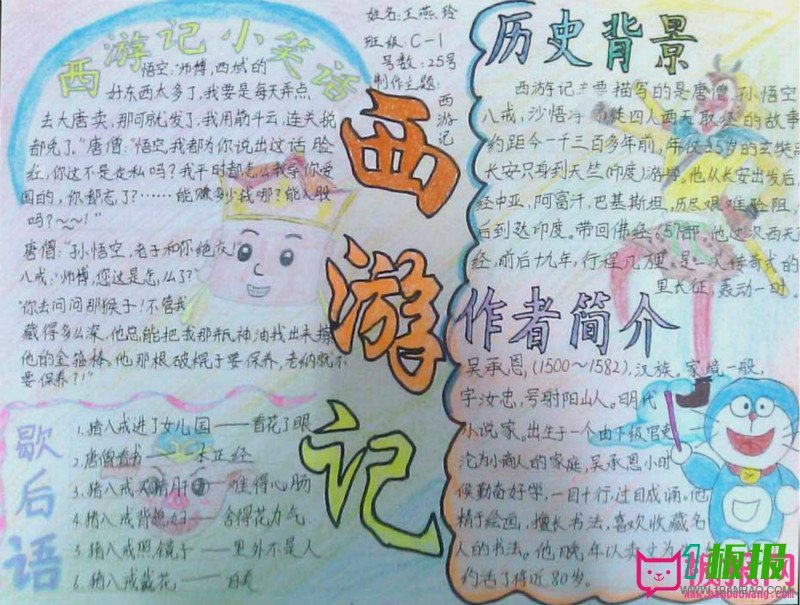 西游记小笑话
悟空:"师傅,西域的
好东西太多了,我要是每天弄点
去大唐卖,那可就发了,我用筋斗云,连关税
都免了。"唐僧:"悟空,我都为你说出这话脸
红,你这不是走私吗?我平时都怎么教导你爱
国的,你都忘了?……能赚多少钱哪?能入股
吗?~~!"
唐僧:"孙悟空,老子和你绝交!"
八戒:"师傅,您这是怎么了?"
"你去问问那猴子!不管我
藏得多么深,他总能把我那瓶神油找出来擦
他的金箍棒。他那根破棍子要保养,老衲就不
要保养?!"
歇后语
1.猪八戒进了女儿国——看花了眼
2.唐僧看书——本正经
3.猪八戒买猪肝——难得心肠
4.猪八戒背媳妇——舍得花力气
5.猪八戒照镜子——里外不是人
6.猪八戒戴花——自美
西游记
姓名:王燕玲
班级:C-1
号数:25号
制作主题:
西游记
历史背景
西游记主要描写的是唐僧,孙悟空
八戒,沙悟净师徒四人西天取经的故事
约距今一千三百多年前,年仅25岁的玄奘
长安只身到天竺(印度)游学。他从长安出发后
经中亚,阿富汗,巴基斯坦,历尽艰难险阻,
后到达印度。带回佛经657部,他这次西天
经,前后十九年,行程几万里,是一次传奇式的
里长征,轰动一时。
作者简介
吴承恩,(1500~1582),汉族。家境一般,
字汝忠,号射阳山人。明代
小说家。出生于一个由下级官吏
沦为小商人的家庭,吴承恩小时
候勤奋好学,一目十行,过目成诵。他
精于绘画,擅长书法,喜欢收藏名
人的书法。他晚年以卖文为
约活了将近80岁。
板报网
www.1banbaowang.com